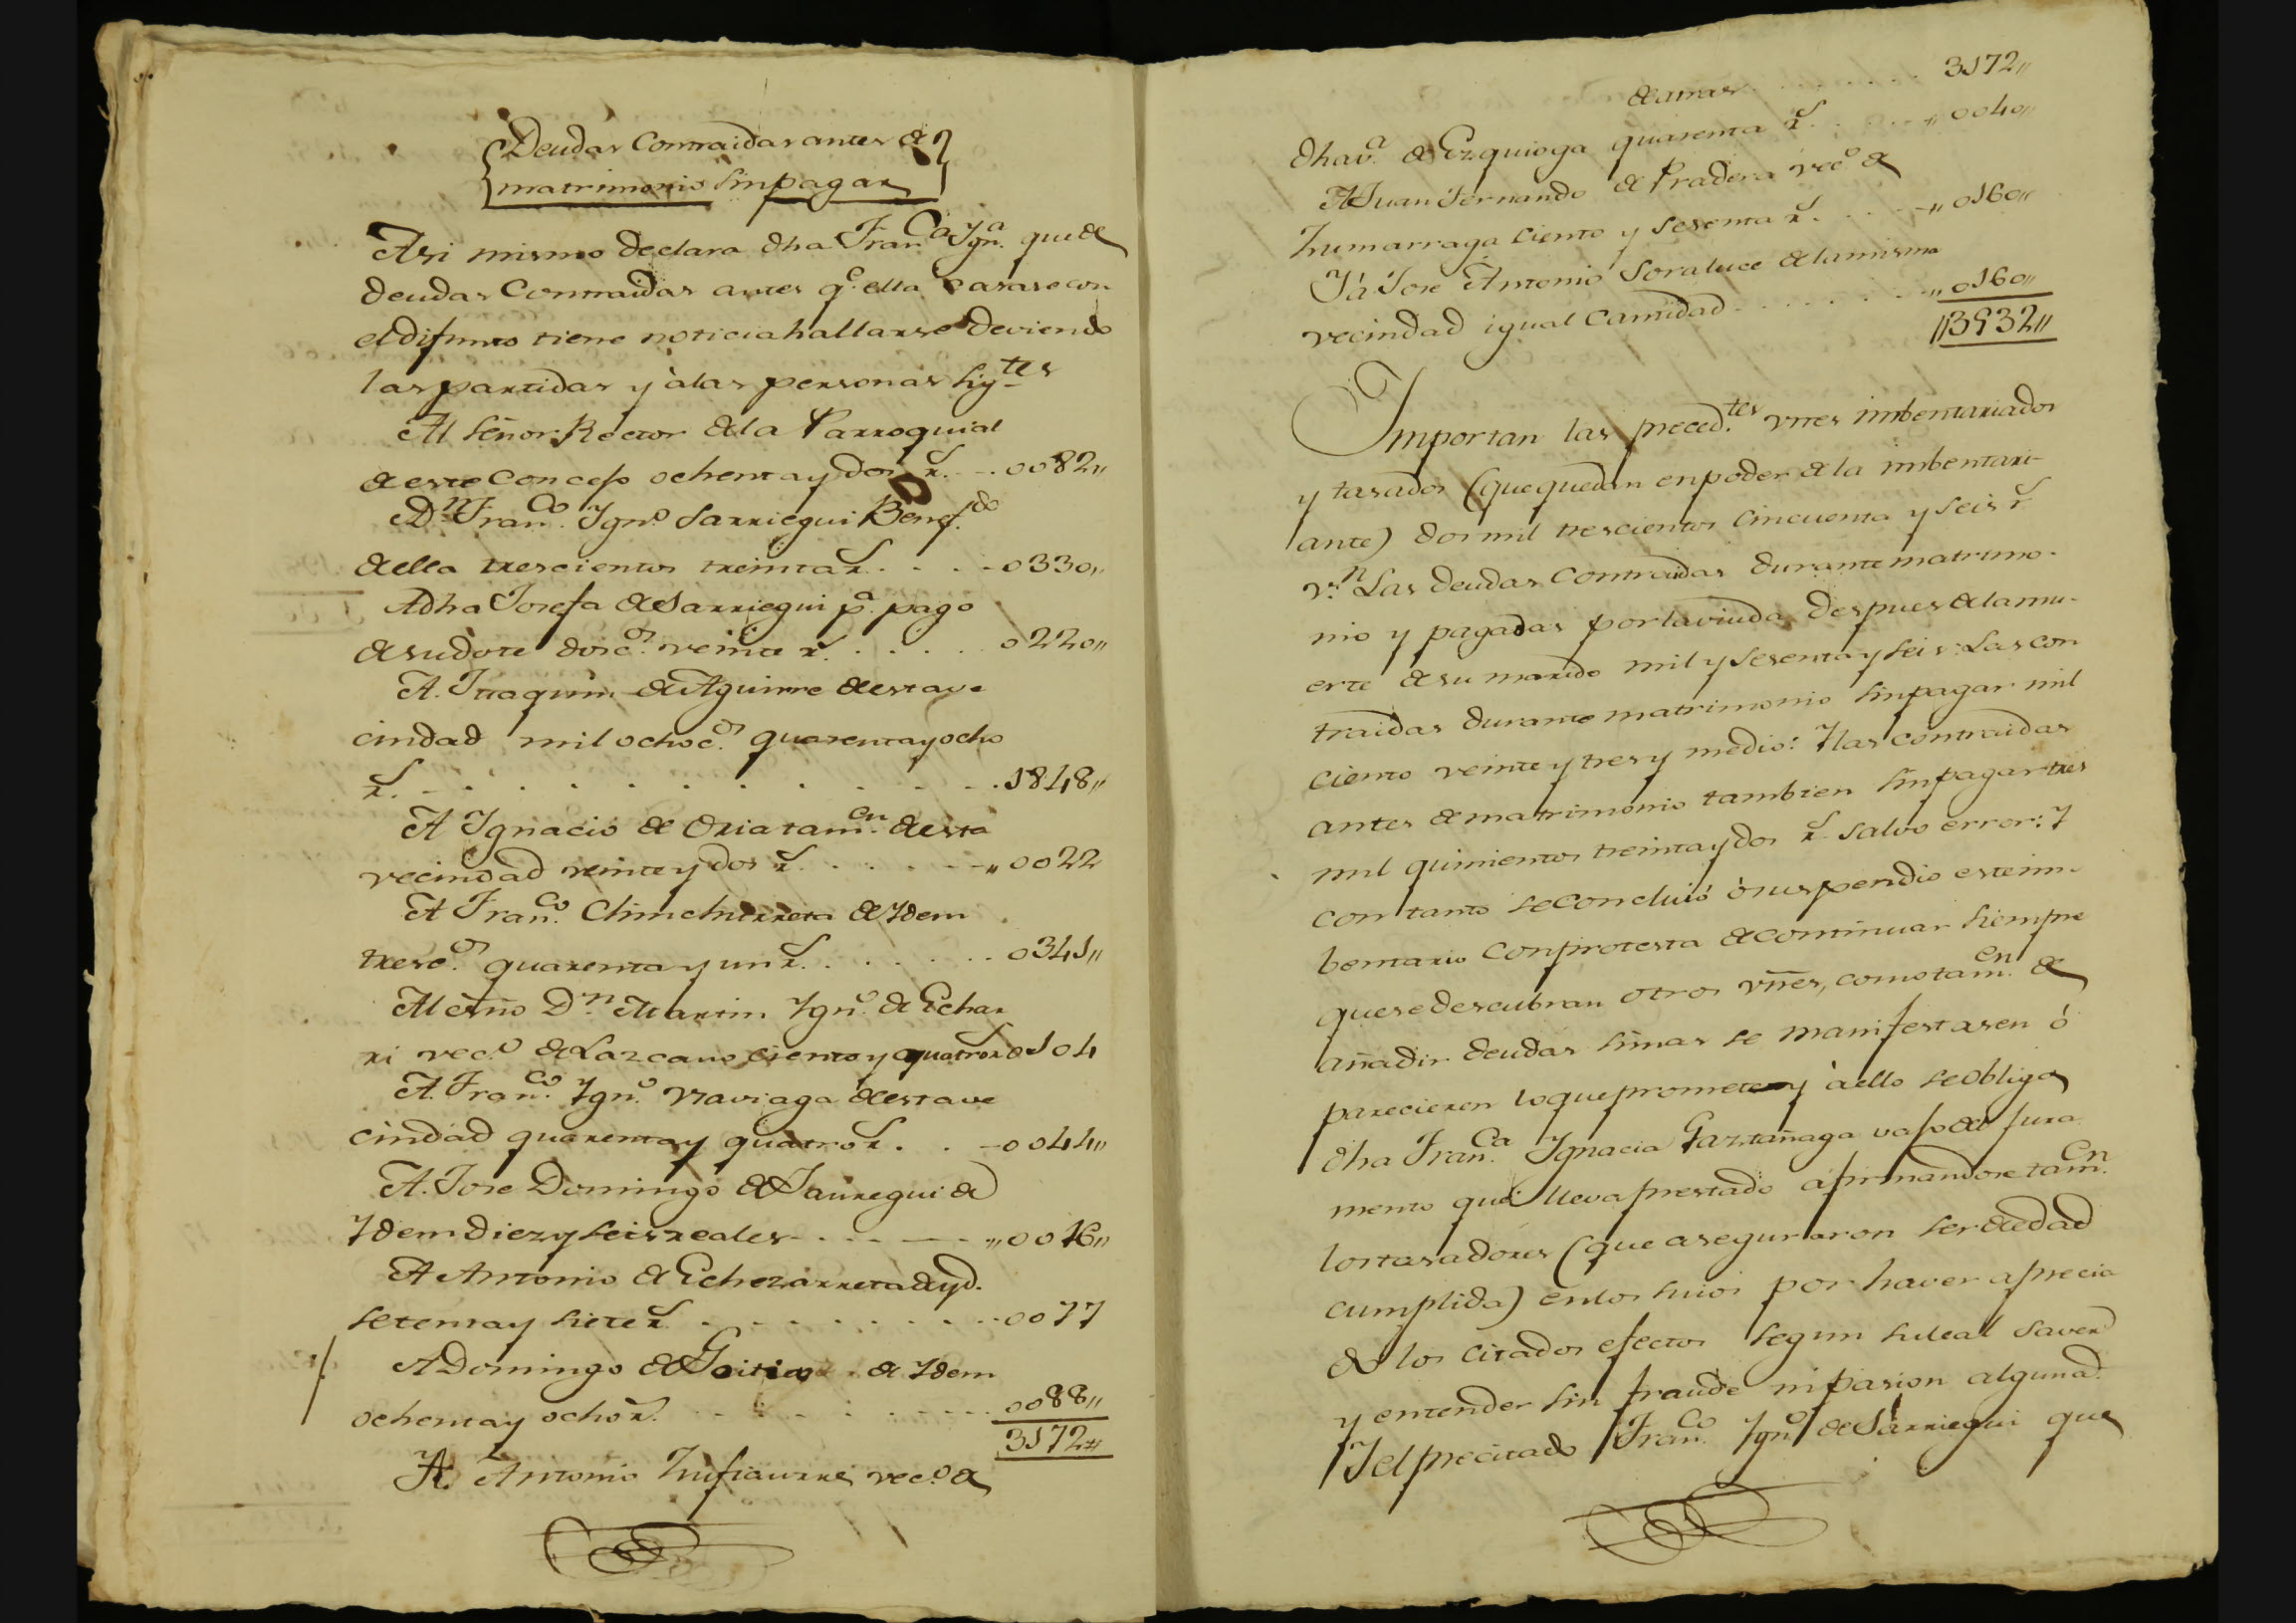 Deudas Contraidas antes de
matrimonio sin pagar
Asi mismo declara dha Fran.ca Ygn.a que de
deudas Contraidas antes q.e ella casase con
el difunto tiene noticia hallarse deviendo
las partidas y à las personas sig.tes
Al señor Rector de la Parroquial
de este Concejo ochenta y dos r.s - - 0082,,
D.n Fran.co Ygn.o Sarriegui Benef.do
de ella trescientos treinta r.s . . . - 0330,,
A dha Josefa de Sarriegui p.a pago
de su dote dosc.s veinte r.s . . . . . 0220,,
A. Joaquin de Aguirre de esta ve
cindad mil ochoc.s quarenta y ocho
r.s - . . . . . . . . . . . 1848,,
A Ygnacio de Oria tam.en de esta
vecindad veinte y dos r.s . . . . . - ,,0022
A Fran.co Chinchurreta de Ydem
tresc.s quarenta y un r.s . . . . . . 0341,,
Al esño D.n Martin Ygn.o de Echar
ri vec.o de Lazcano ciento y quatro r.s 0104
A. Fran.co Ygn.o Naviaga de esta ve
cindad quarenta y quatro r.s . . - 0044,,
A. Jose Domingo de Jauregui de
Ydem diez y seis reales - . . - - . ,,0016,,
A Antonio de Echezarreta de yd.
setenta y siete r.s . . . . . . . . 0077
A Domingo de Goitia de Ydem
ochenta y ocho r.s . . . . . . . 0088,,
3172,,
A. Antonio Zufiaurre vec.o de
de atras . . . . . . 3172,,
dha v.a de Ezquioga quarenta r.s . . . ,,0040,,
A Juan Fernando de Pradera vec.o de
Zumarraga ciento y sesenta r.s . . . - ,,0160,,
Y à Jose Antonio Soraluce de la misma
vecindad igual Cantidad . . . . . . ,,0160,,
,,3532,,
Importan las preced.tes vnes imbentariados
y tasados (que quedan en poder de la imbentari-
ante) dos mil trescientos cincuenta y seis r.s
v.n Las deudas Contraidas durante matrimo-
nio y pagadas por la viuda despues de la mu-
erte de su marido mil y sesenta y seis: Las con
traidas durante matrimonio sin pagar mil
ciento veinte y tres y medio: Y las contraidas
antes de matrimonio tambien sin pagar tres
mil quinientos treinta y dos r.s salvo error: Y
con tanto se concluió ò suspendio este im-
bentario con protesta de continuar siempre
que se descubran otros vñes, como tam.en de
añadir deudas si mas se manifestasen ó
parecieren lo que promete y à ello se obliga
dha Fran.ca Ygnacia Gaztañaga vajo del jura
mento que lleva prestado afirmandose tam.en
los tasadores (que aseguraron ser de edad
cumplida) en los suios por haver aprecia
do los citados efectos segun su leal saver
y entender sin fraude ni pasion alguna.
Y el precitado Fran.co Ygn.o de Sarriegui que